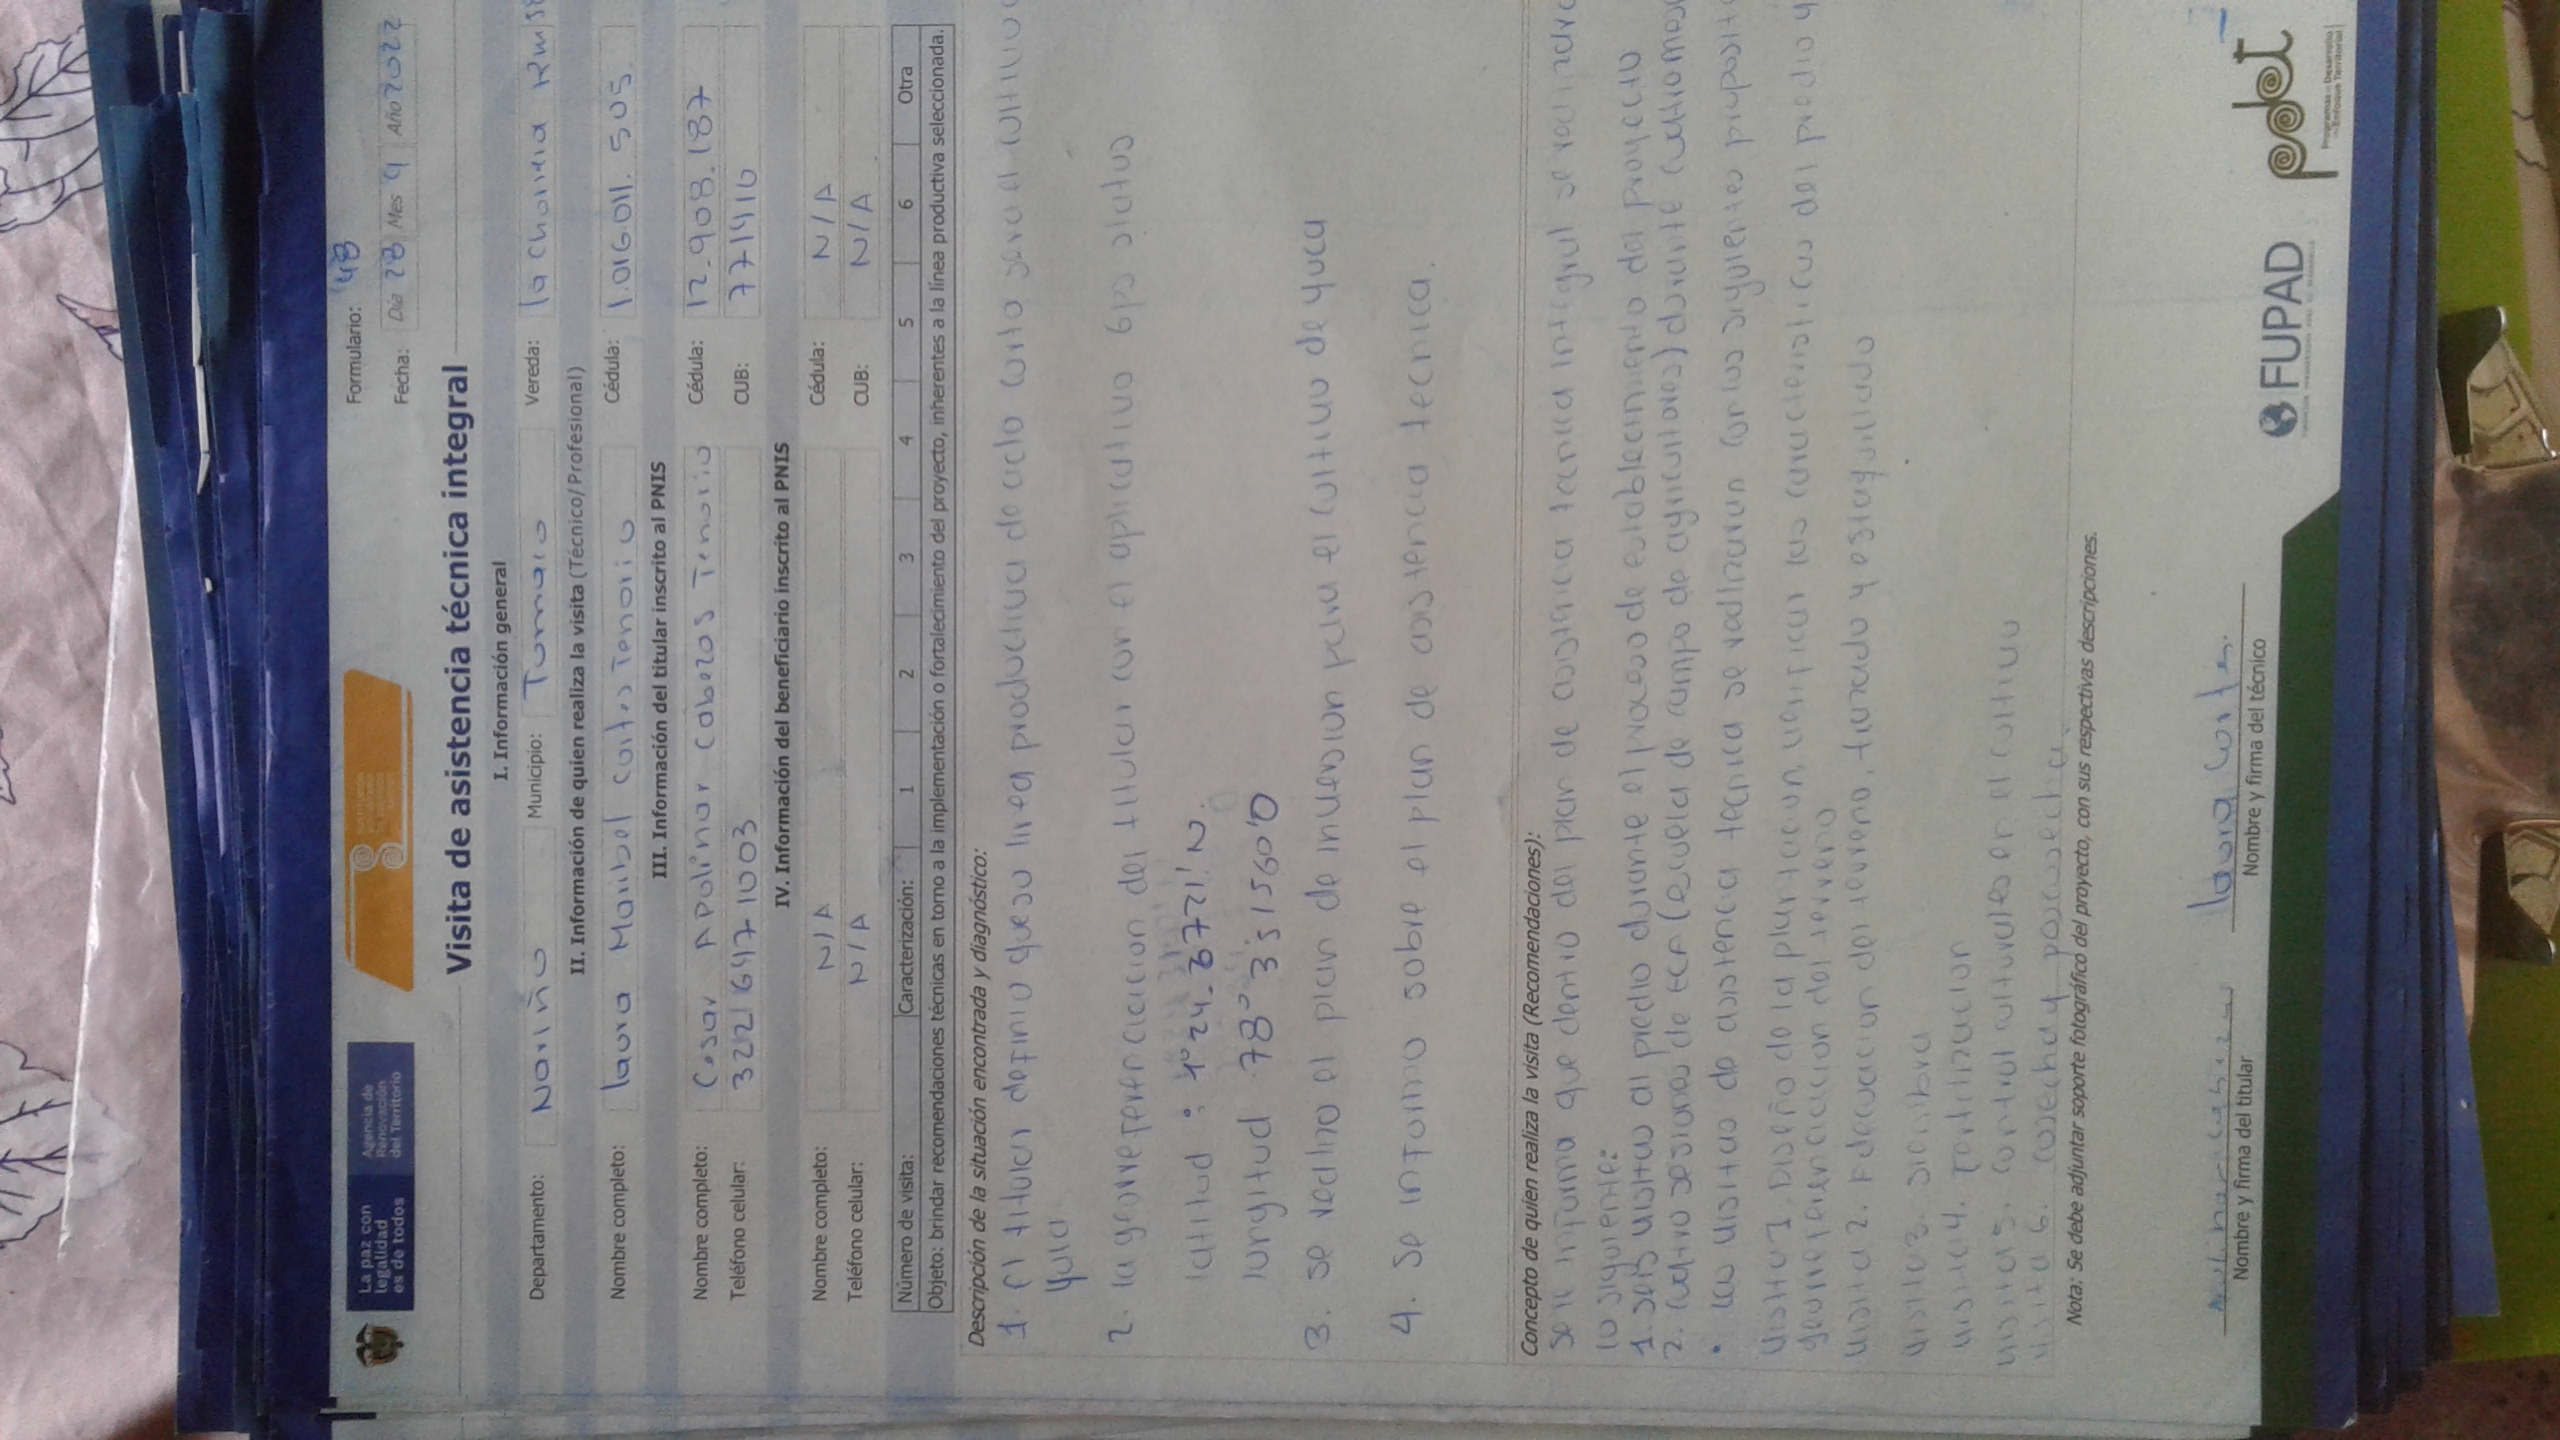 La paz con
legalidad
es de todos
Agencia de
Renovación
del Territorio
Formulario: 48
Fecha: Día 28 Mes 4 Año 2022
Visita de asistencia técnica integral
I. Información general
Departamento: Nariño Municipio: Tumaco Vereda: la Chorrera Km
II. Información de quien realiza la visita (Técnico/Profesional)
Nombre completo: laura Maribel cortes Tenorio Cédula: 1.016.011.505
III. Información del titular inscrito al PNIS
Nombre completo: Cesar Apolinar Cabezas Tenorio Cédula: 12.908.187
Teléfono celular: 3221647 1003 CUB: 771416
IV. Información del beneficiario inscrito al PNIS
Nombre completo: N/A Cédula: N/A
Teléfono celular: N/A CUB: N/A
Número de visita: Caracterización: 1 2 3 4 5 6 Otra
Objeto: brindar recomendaciones técnicas en torno a la implementación o fortalecimiento del proyecto, inherentes a la línea productiva seleccionada.
Descripción de la situación encontrada y diagnóstico:
1. El titular definio que su linea productiva de ciclo corto sera el cultivo
yuca
2. la georreferenciacion del titular con el aplicativo Gps status
latitud: 1°24. N.
longitud 78°
3. se realizo el plan de inversion para el cultivo de yuca
4. Se informo sobre el plan de asistencia tecnica.
Concepto de quien realiza la visita (Recomendaciones):
Se le informa que dentro del plan de asistencia tecnica integral se realizara
lo siguiente:
1. seis visitas al predio durante el proceso de establecimiento del proyecto
2. cuatro sesiones de ECA (escuela de campo de agricultores) durante
• las visitas de asistencia tecnica se realizaran con los siguientes
visita 1. Diseño de la plantacion, verificar las caracteristicas del predio y
georreferenciacion del terreno
visita 2. Adecuacion del terreno, trazado y estaquillado
visita 3. siembra
visita 4. Fertilizacion
visita 5. control culturales en el cultivo
visita 6. cosecha y poscosecha
Nota: Se debe adjuntar soporte fotográfico del proyecto, con sus respectivas descripciones.
laura cortes.
Nombre y firma del titular
Nombre y firma del técnico
FUPAD
pdet
Programas de Desarrollo
con Enfoque Territorial